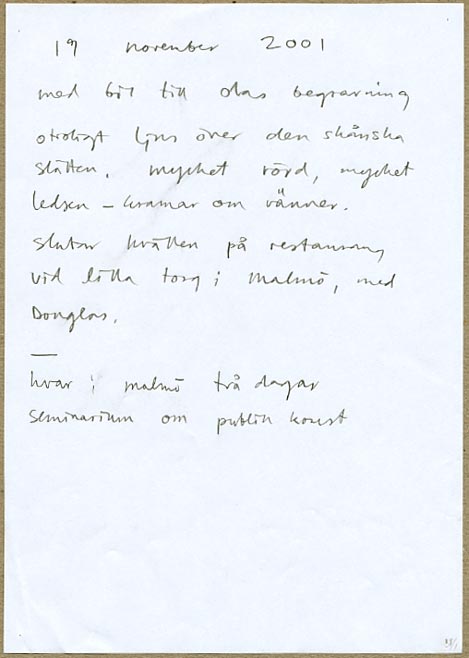 19 november 2001
med bil till olas begravning
otroligt ljus över den skånska
slätten. mycket rörd, mycket
ledsen – kramar om vänner.
slutar kvällen på restaurang
vid lilla torg i malmö, med
Douglas.
—
kvar i malmö två dagar
seminarium om publik konst